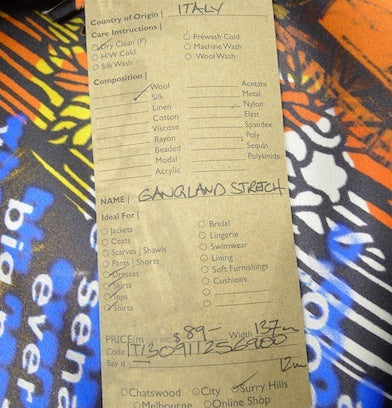 Country of Origin | ITALY
Care Instructions |
Dry Clean (P) Prewash Cold
H/W Cold Machine Wash
Silk Wash Wool Wash
Composition |
Wool Acetate
Silk Metal
Linen Nylon
Cotton Elast
Viscose Spandex
Rayon Poly
Beaded Sequin
Modal Polyamide
Acrylic
NAME | GANGLAND STRETCH
Ideal For |
Jackets Bridal
Coats Lingerie
Scarves | Shawls Swimwear
Pants | Shorts Lining
Dresses Soft Furnishings
Skirts Cushions
Tops
Shirts
PRICE/m $ 89- Width 137cm
Code
Bay # 12m
Chatswood City Surry Hills
Melbourne Online Shop
bio
ever
sena